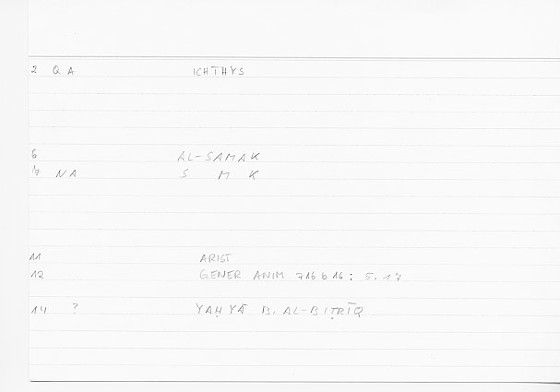 2 Q A ICHTHYS
6 AL-SAMAK
NA S M K
11 ARIST
12 GENER ANIM 716 b 16 : 5.17
14 ? YAḤYĀ B. AL-BIṬRĪQ